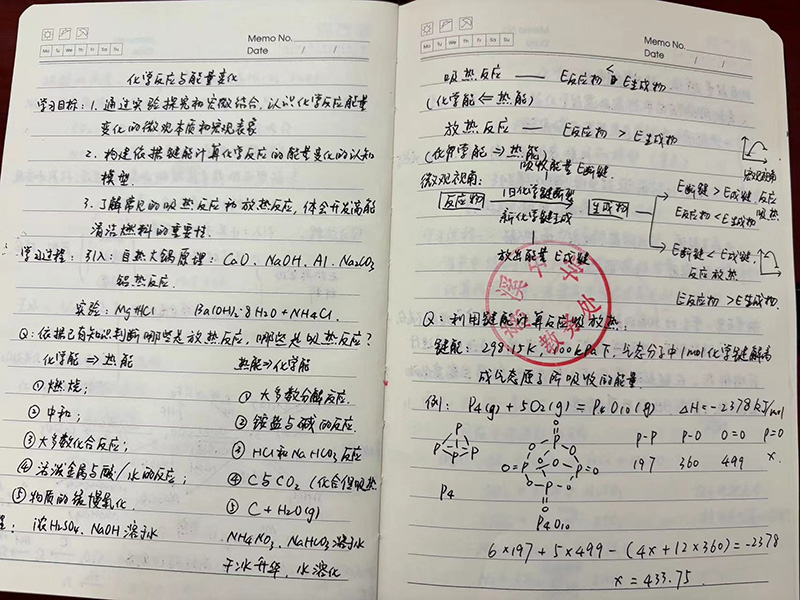 Memo No.
Mo Tu We Th Fr Sa Su
Date / /
化学反应与能量变化
学习目标：1. 通过实验探究和宏微结合，认识化学反应能量
变化的微观本质和宏观表象
2. 构建依据键能计算化学反应的能量变化的认知
模型.
3. 了解常见的吸热反应和放热反应，体会开发高能
清洁燃料的重要性.
学习过程：引入：自热火锅原理：CaO、NaOH、Al、Na2CO3
铝热反应.
实验：Mg+HCl Ba(OH)2·8H2O+NH4Cl.
Q：依据已有知识判断哪些是放热反应，哪些是吸热反应？
化学能 ⇒ 热能 热能⇒化学能
①燃烧； ①大多数分解反应.
②中和； ②铵盐与碱的反应.
③大多数化合反应； ③HCl和NaHCO3反应
④活泼金属与酸/水的反应； ④C与CO2（化合但吸热
⑤物质的缓慢氧化. ⑤C+H2O(g)
浓H2SO4、NaOH溶于水 NH4NO3、NaHCO3溶于水
干冰升华，冰溶化
Memo No.
Mo Tu We Th Fr Sa Su
Date / /
吸热反应 —— E反应物 < E生成物
(化学能 ⇐ 热能)
放热反应 —— E反应物 > E生成物
(化学能 ⇒ 热能)
宏观视角
吸收能量E断键
微观视角：
反应物 旧化学键断裂 生成物
新化学键生成
放出能量 E成键
E断键 > E成键 反应吸热
E反应物 < E生成物
E断键 < E成键，
反应放热
E反应物 > E生成物.
教务处
Q：利用键能计算反应吸放热：
键能：298.15K，100kPa下，气态分子中1mol化学键解离
成气态原子所吸收的能量.
例：P4(g) + 5O2(g) = P4O10(g) ΔH=-2378kJ/mol
P-P P-O O=O P=O
197 360 499 x.
P P P P
O O P P O O O P O P O O
P4
P4O10
6×197+5×499-(4x+12×360)=-2378
x=433.75.